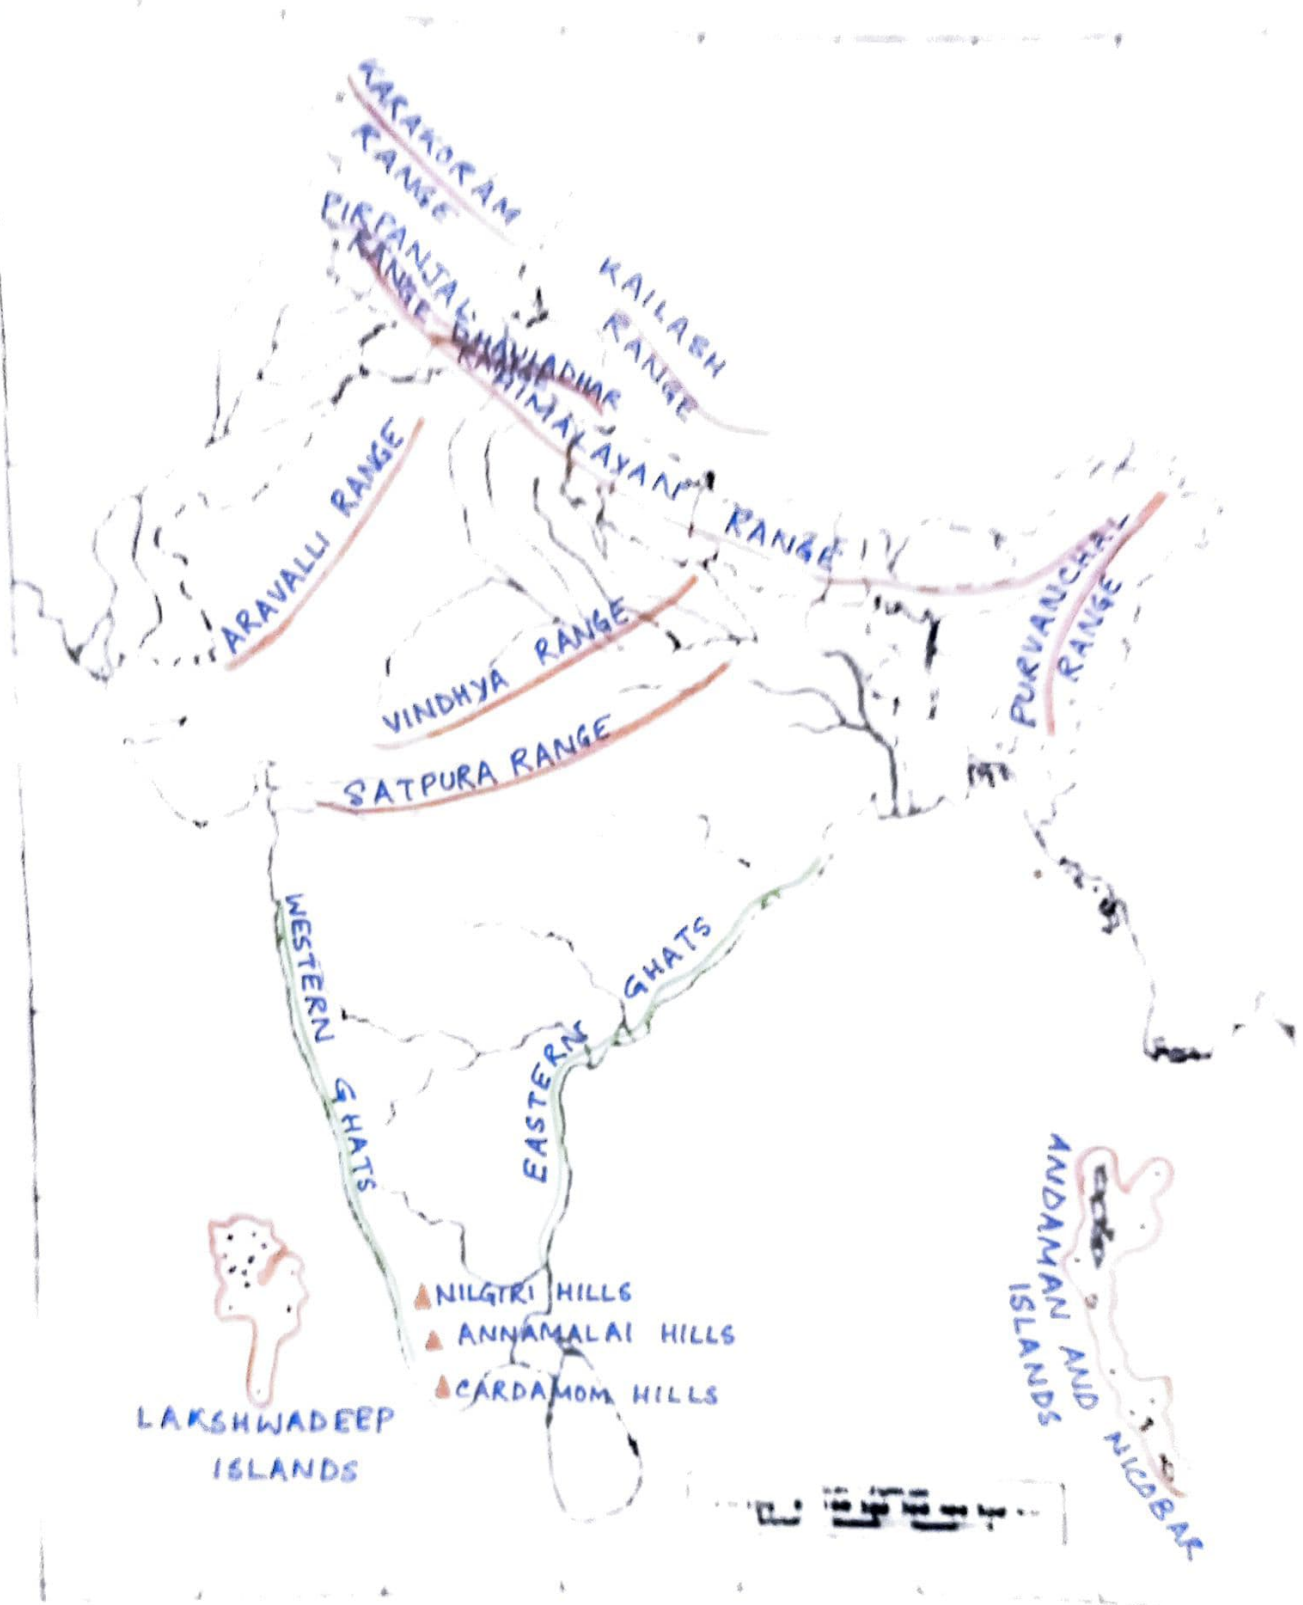 KARAKORAM
RANGE
PIRPANJAL
RANGE
DHAULADHAR
RANGE
KAILASH
RANGE
HIMALAYAN RANGE
ARAVALLI RANGE
PURVANCHAL
RANGE
VINDHYA RANGE
SATPURA RANGE
WESTERN GHATS
EASTERN GHATS
NILGIRI HILLS
ANNAMALAI HILLS
CARDAMOM HILLS
LAKSHWADEEP
ISLANDS
ANDAMAN AND NICOBAR
ISLANDS